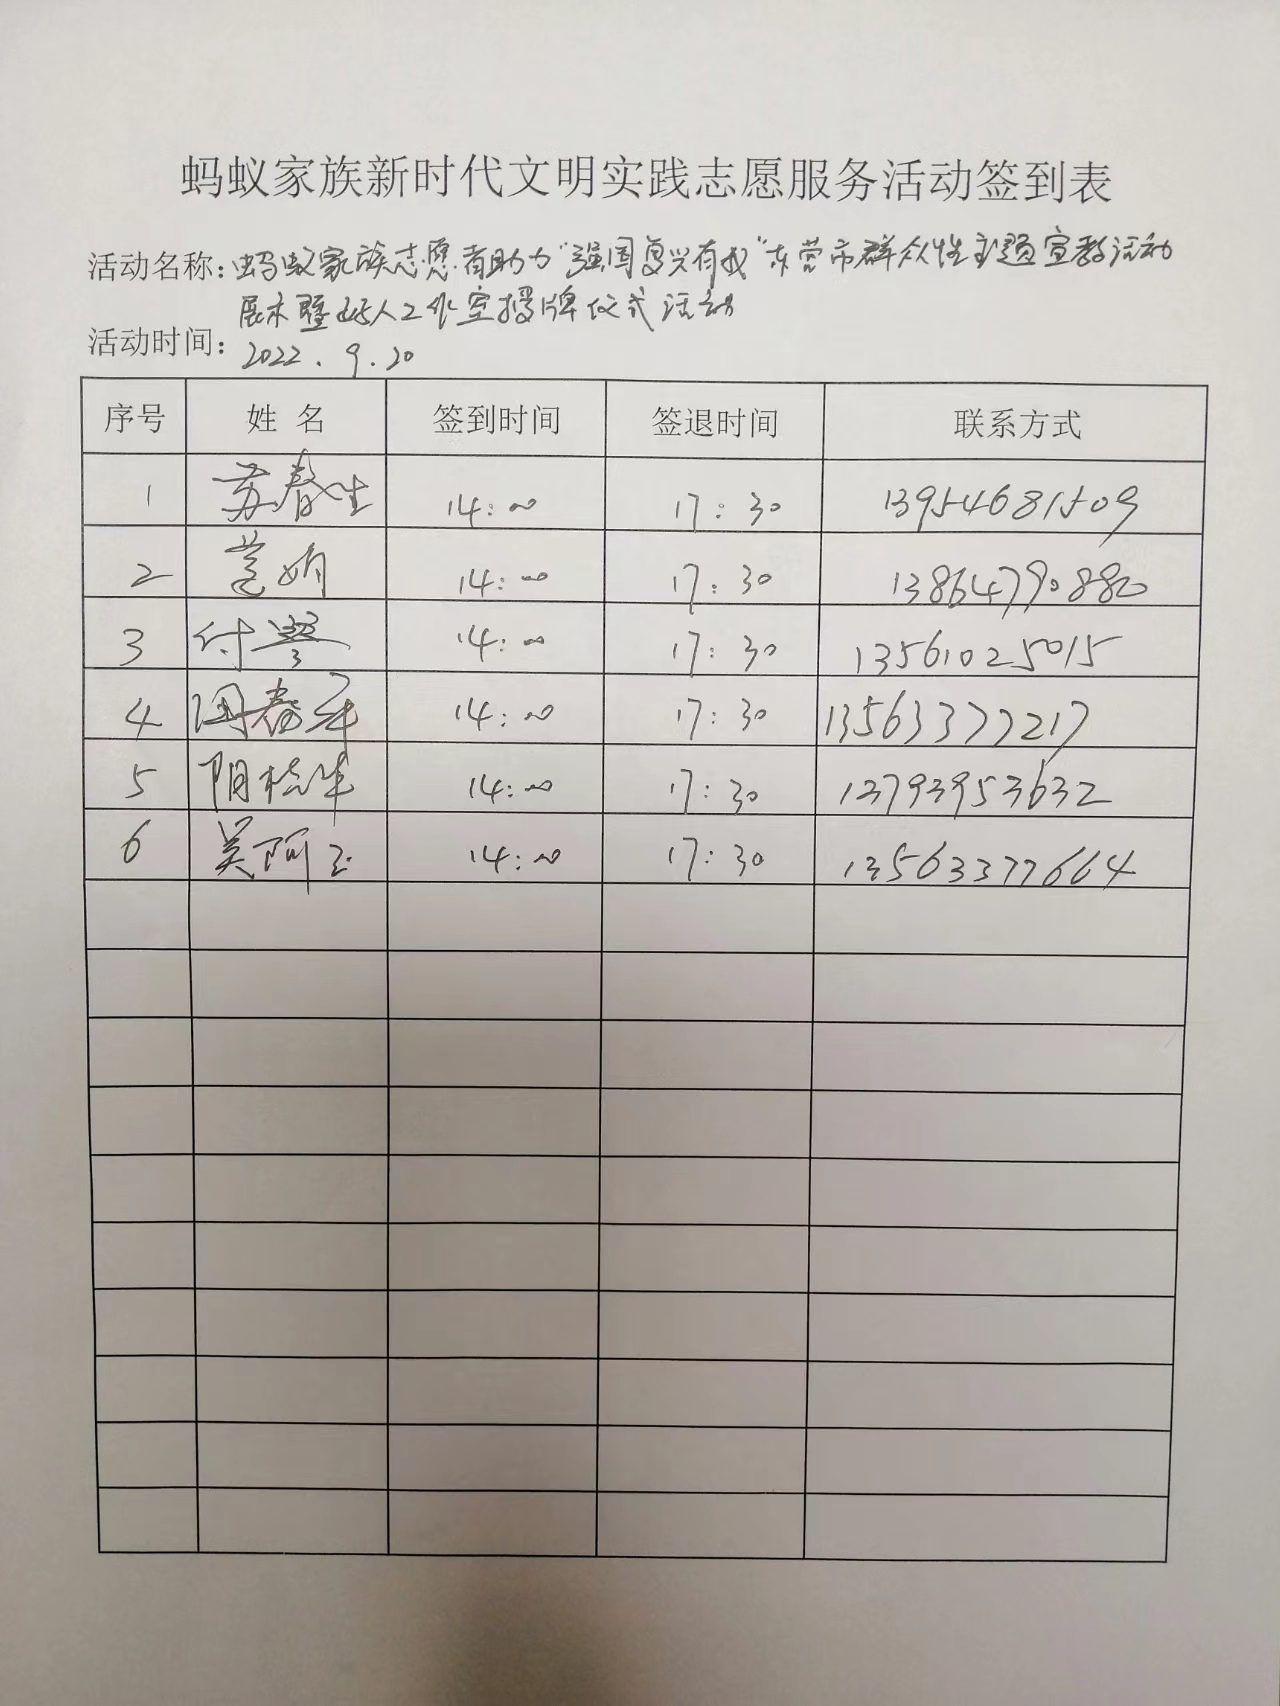 蚂蚁家族新时代文明实践志愿服务活动签到表
活动名称：蚂蚁家族志愿者助力“强国复兴有我”东营市群众性主题宣教活动
人工作室授牌仪式活动
活动时间：2022.9.20
序号 姓名 签到时间 签退时间 联系方式
1 苏春生 14:00 17:30 13954681509
2 娟 14:00 17:30 13864790880
3 付 14:00 17:30 13561025015
4 春 14:00 17:30 13563377217
5 阴 14:00 17:30 13793953632
6 吴阿玉 14:00 17:30 13563377664